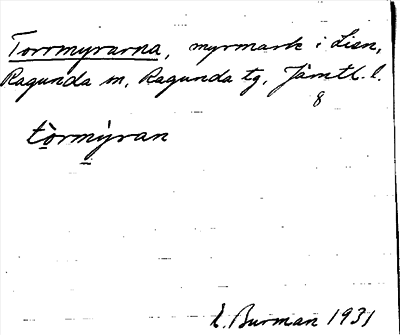 Torrmyrarna, myrmark i Lien,
Ragunda sn, Ragunda tg, Jämtl. l.
8
tòrmýran
L. Burman 1931